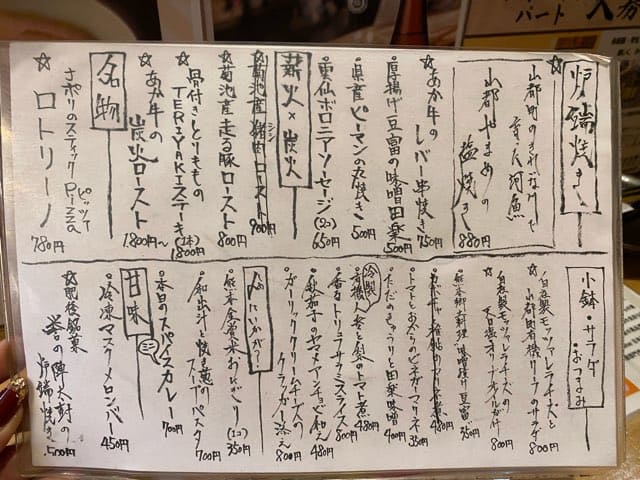 炉端焼き
山都町のきれいな水で
育った河魚
山都やまめの
塩焼き 880円
☆あか牛の
レバー串焼き 750円
・厚揚げ豆富の味噌田楽 500円
・県産ピーマンの丸焼き 500円
・雲仙ボロニアソーセージ(2コ) 650円
薪火×炭火
☆菊池産猪肉ロースト 900円
☆菊池産走る豚ロースト 800円
・骨付きとりももの
TERIYAKIステーキ(1本) 1,800円
☆あか牛の
炭火ロースト 1,800円〜
名物
ナポリのスティックPizza
ピッツァ
☆ロトリーノ 780円
小鉢・サラダ
・おつまみ
・自家製モッツァレラチーズと
山都町有機リーフのサラダ 800円
☆自家製モッツァレラチーズの
天日塩オリーブオイルがけ 800円
☆熊本郷土料理 味噌漬け豆富 350円
・トマトとおからのビネガーマリネ 350円
・ただのきゅうりと田楽味噌 400円
冷製
・有機人参と鶏のトマト煮 480円
・香るトリュフサラミスライス 800円
・秋茄子のヤマメアンチョビ和え 480円
・ガーリッククリームチーズの
クラッカー添え 800円
〆にいかがで?
・熊本金賞米おにぎり(1コ) 350円
・和出汁と焼き葱の
スープパスタ 700円
・本日のスパイスカレー 700円
ミニ
甘味
・冷凍マスクメロンバー 450円
☆肥後銘菓
誉の陣太鼓の
炉端焼き 500円